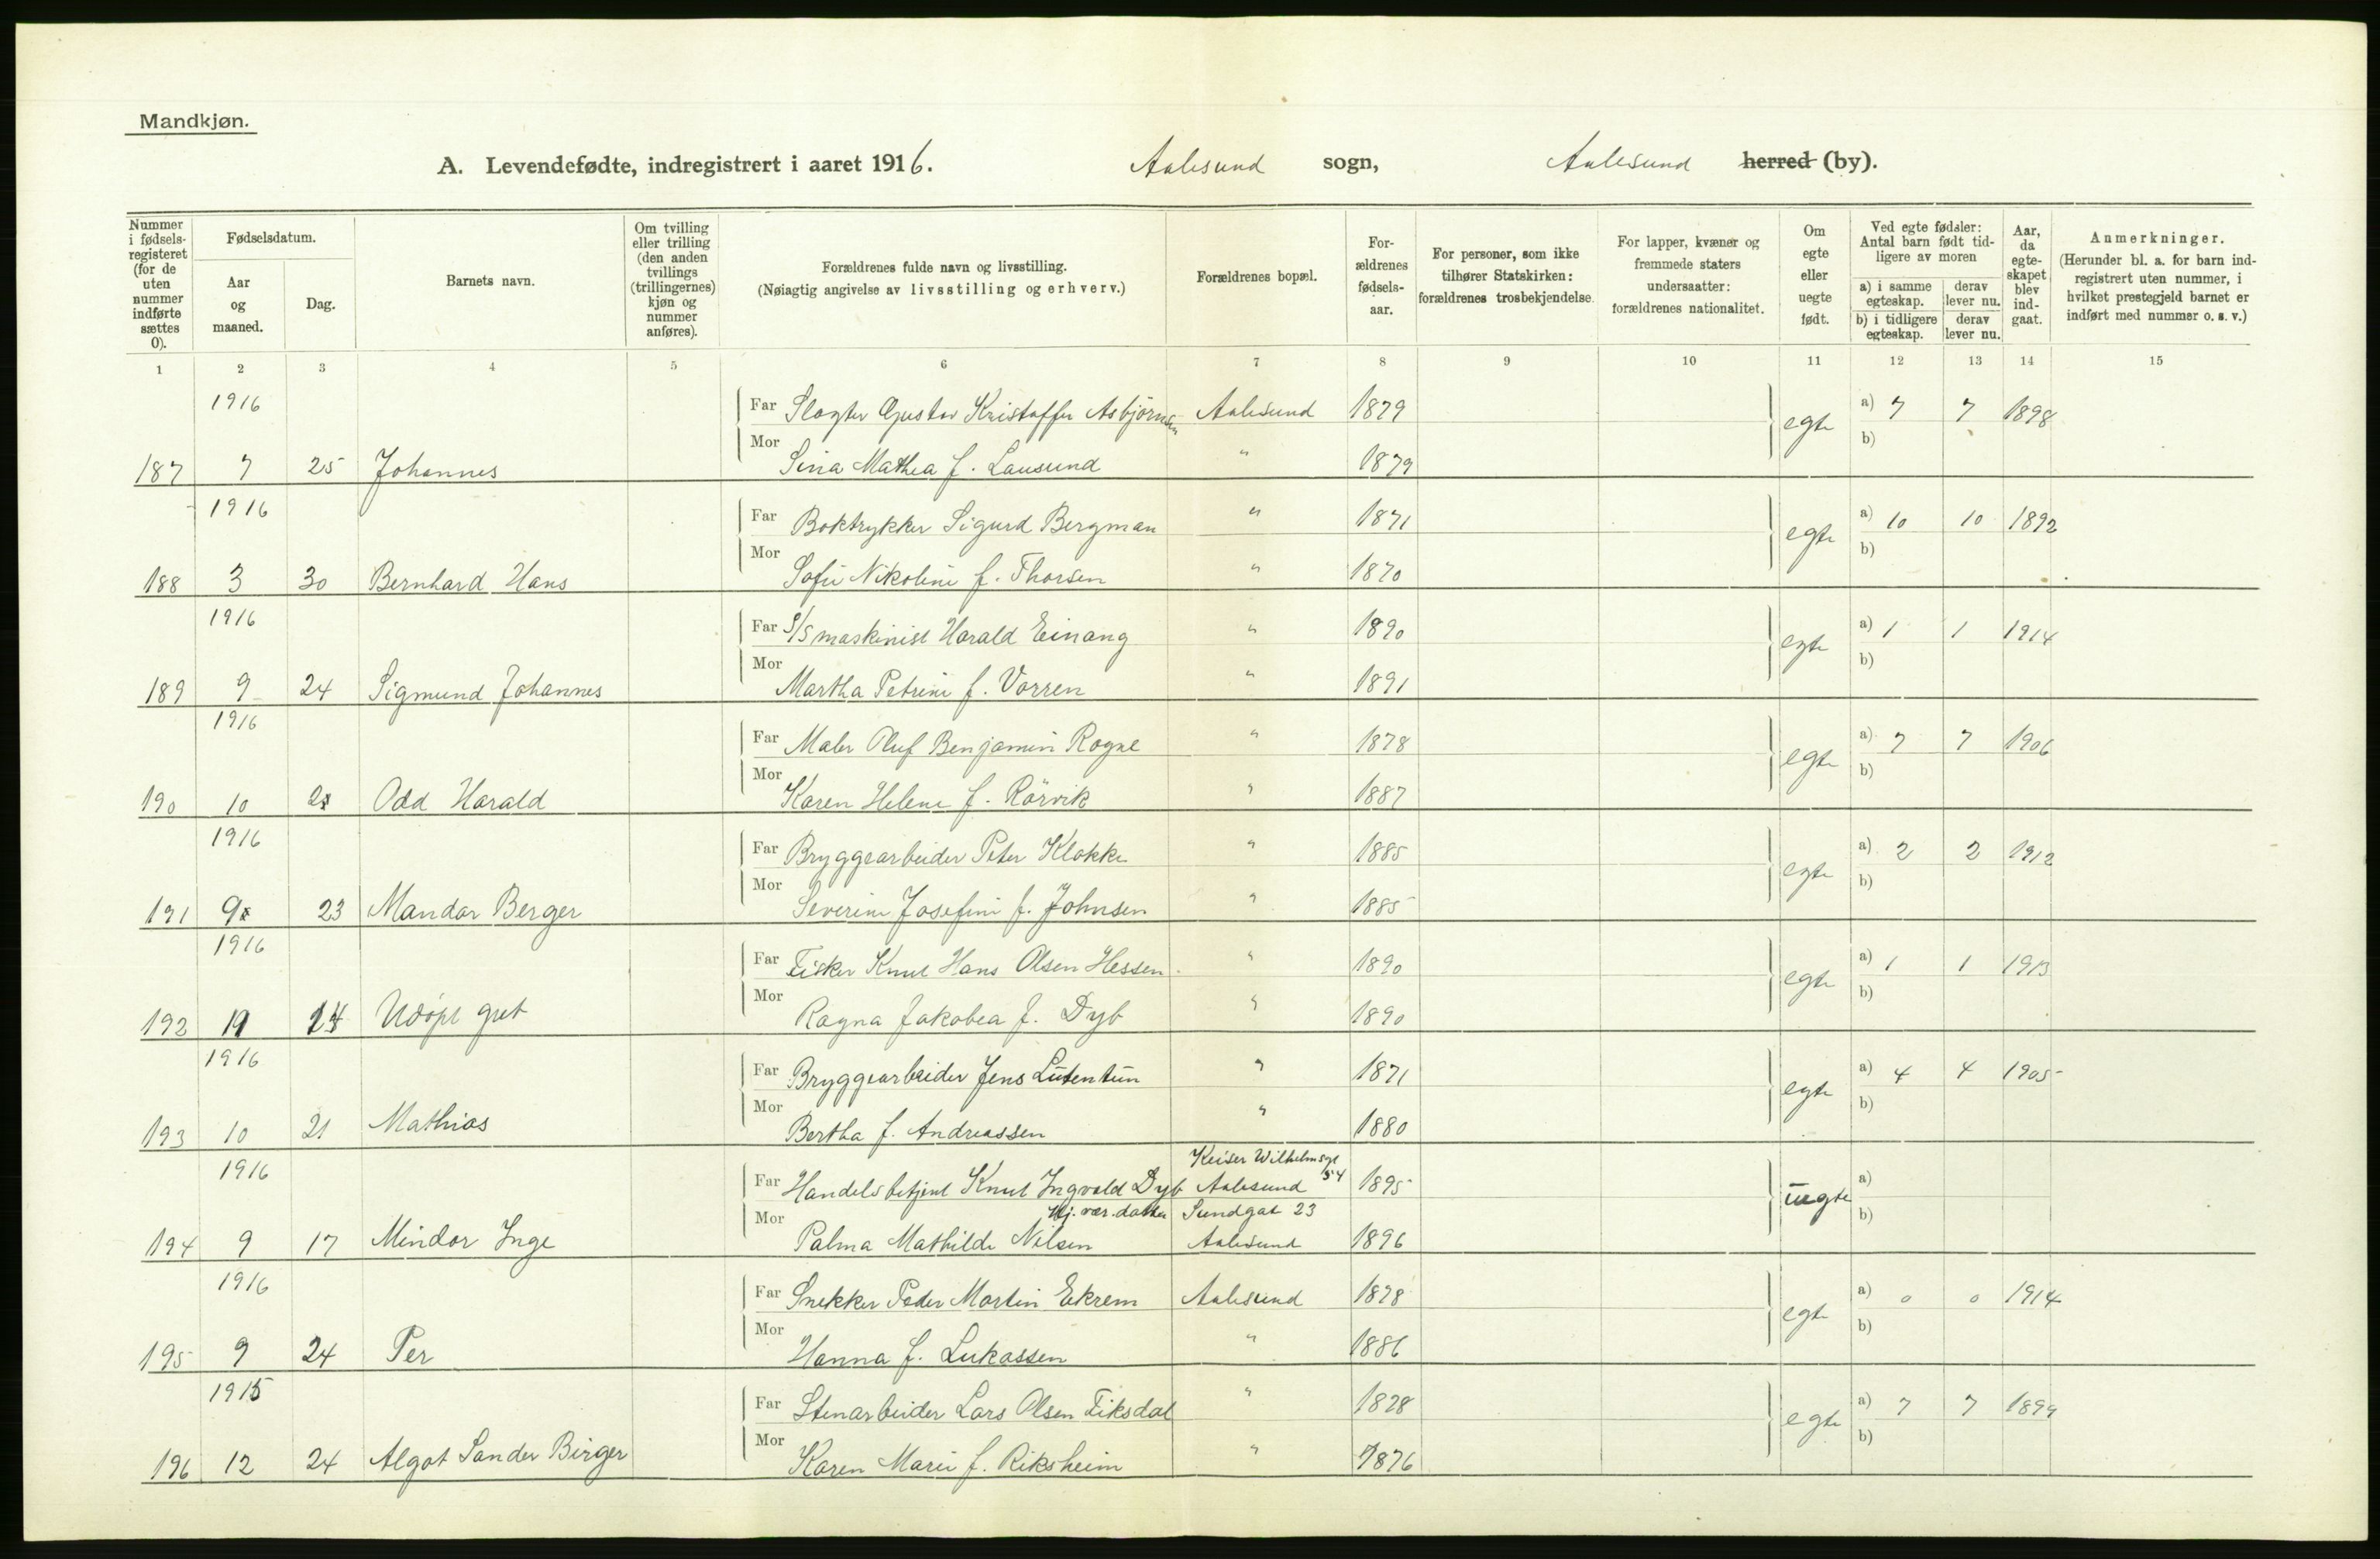 Mandkjøn.
A. Levendefødte, indregistrert i aaret 1916. Aalesund sogn, Aalesund herred (by).
Nummer i fødselsregisteret (for de uten nummer indførte sættes 0).
Fødselsdatum.
Aar og maaned.
Dag.
Barnets navn.
Om tvilling eller trilling (den anden tvillings (trillingernes) kjøn og nummer anføres).
Forældrenes fulde navn og livsstilling.
(Nøiagtig angivelse av livsstilling og erhverv.)
Forældrenes bopæl.
Forældrenes fødselsaar.
For personer, som ikke tilhører Statskirken: forældrenes trosbekjendelse.
For lapper, kvæner og fremmede staters undersaatter: forældrenes nationalitet.
Om egte eller uegte født.
Ved egte fødsler: Antal barn født tidligere av moren
a) i samme egteskap. derav lever nu.
b) i tidligere egteskap. derav lever nu.
Aar, da egteskapet blev indgaat.
Anmerkninger.
(Herunder bl. a. for barn indregistrert uten nummer, i hvilket prestegjeld barnet er indført med nummer o. s. v.)
1 2 3 4 5 6 7 8 9 10 11 12 13 14 15
1916 Far Slagter Gustav Kristoffer Asbjörnsen Aalesund 1879 egte a) 7 7 1898
187 7 25 Johannes Mor Sina Mathea f. Lausund " 1879 b)
1916 Far Boktrykker Sigurd Bergman " 1871 egte a) 10 10 1892
188 3 30 Bernhard Hans Mor Sofie Nikoline f. Thorsen " 1870 b)
1916 Far S/S maskinist Harald Einang " 1890 egte a) 1 1 1914
189 9 24 Sigmund Johannes Mor Martha Petrine f. Vorren " 1891 b)
1916 Far Maler Oluf Benjamin Rogne " 1878 egte a) 7 7 1906
190 10 Odd Harald Mor Karen Helene f. Rörvik " 1887 b)
1916 Far Bryggearbeider Peter Klokke " 1885 egte a) 2 2 1912
191 9 23 Mandor Berger Mor Severine Josefine f. Johnsen " 1885 b)
1916 Far Fisker Knut Hans Olsen Hessen " 1890 egte a) 1 1 1913
192 Udöpt gut Mor Ragna Jakobea f. Dyb " 1890 b)
1916 Far Bryggearbeider Jens Lutentun " 1871 egte a) 4 4 1905
193 10 21 Mathias Mor Bertha f. Andreassen " 1880 b)
Keiser Wilhelmsgt 54
1916 Far Handelsbetjent Knut Ingvald Dyb Aalesund 1895 uegte a)
Hj. vær. datter Sundgat 23
194 9 17 Mindor Inge Mor Palma Mathilde Nilsen Aalesund 1896 b)
1916 Far Snekker Peder Martin Ekrem Aalesund 1878 egte a) 0 0 1914
195 9 24 Per Mor Hanna f. Lukassen " 1886 b)
1915 Far Stenarbeider Lars Olsen Fiksdal " 1878 egte a) 7 7 1899
196 12 24 Algot Sander Birger Mor Karen Marie f. Riksheim " 1876 b)